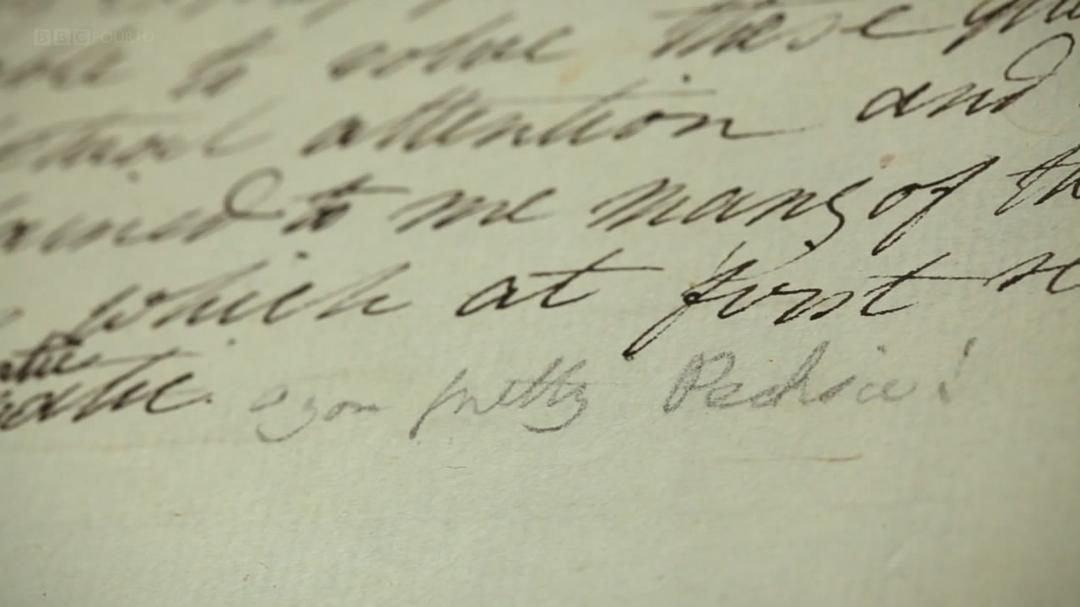 BBC FOUR HD
to solve these
attention and
to me many of th
which at first
pretty Pecksie!